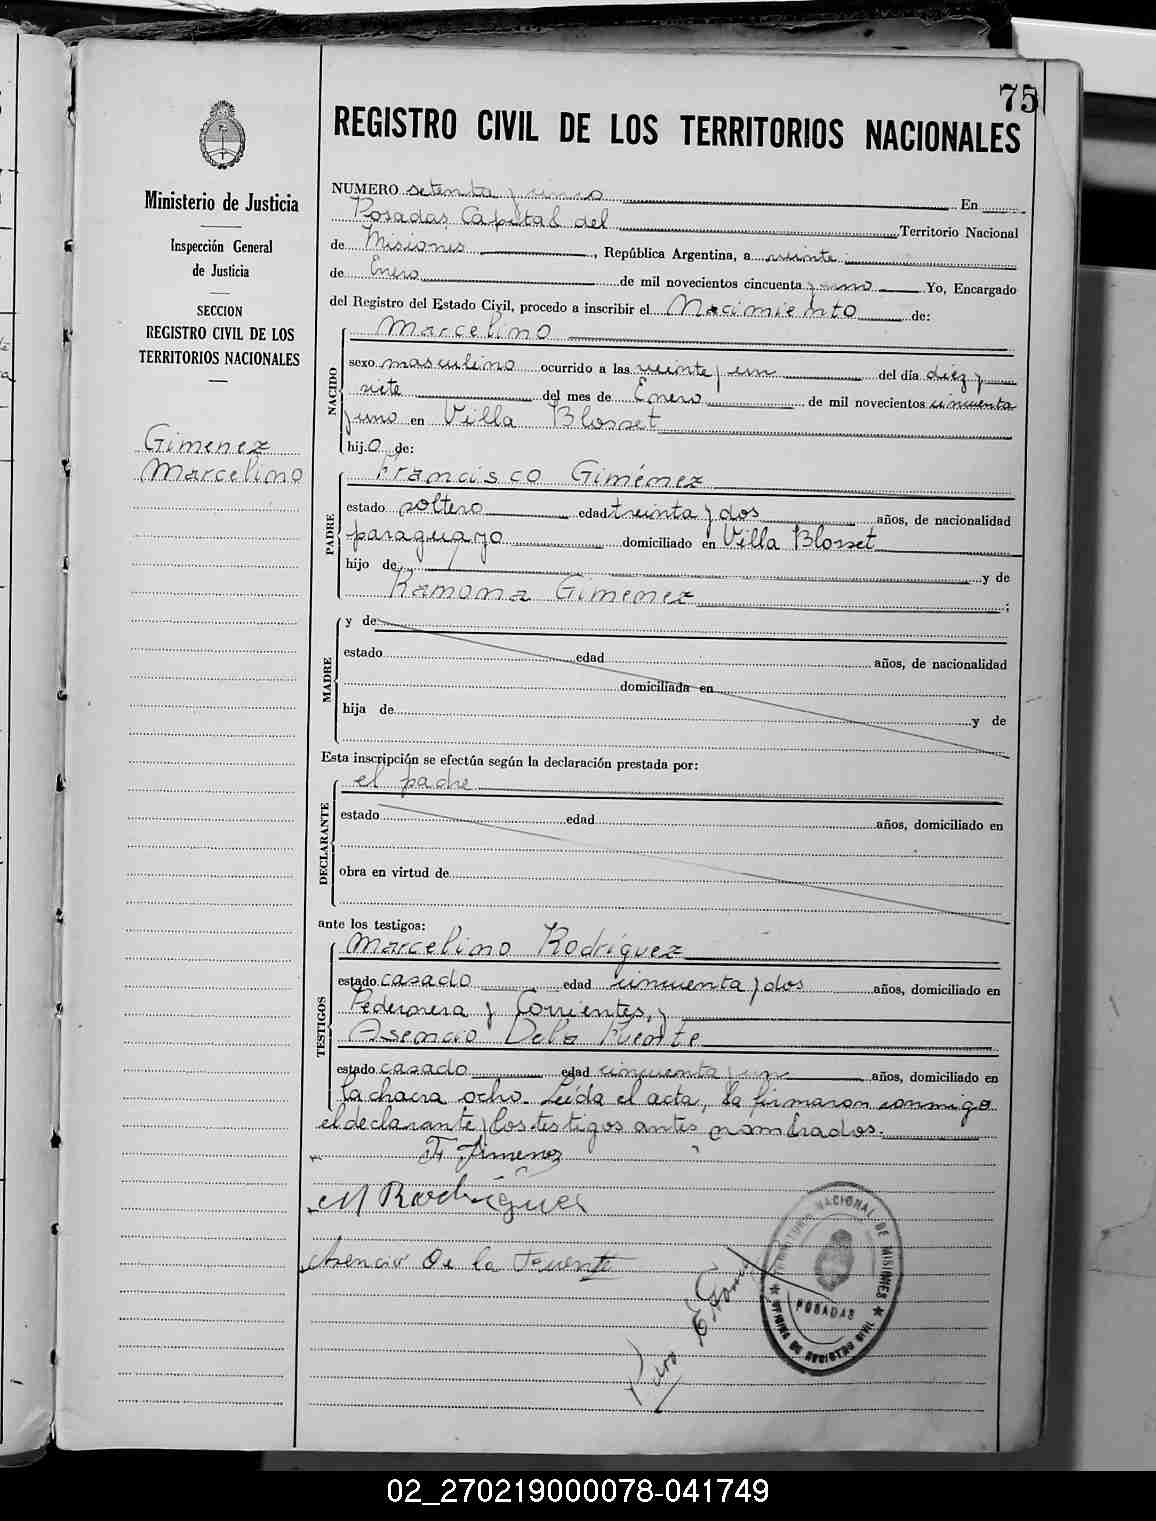 75
REGISTRO CIVIL DE LOS TERRITORIOS NACIONALES
Ministerio de Justicia
Inspección General
de Justicia
SECCION
REGISTRO CIVIL DE LOS
TERRITORIOS NACIONALES
Gimenez
Marcelino
NUMERO setenta y cinco En
Posadas Capital del Territorio Nacional
de Misiones, República Argentina, a veinte
de Enero de mil novecientos cincuenta y uno Yo, Encargado
del Registro del Estado Civil, procedo a inscribir el Nacimiento de:
NACIDO
Marcelino
sexo masculino ocurrido a las veinte y un del día diez y
siete del mes de Enero de mil novecientos cincuenta
y uno en Villa Blosset
hijo de:
PADRE
Francisco Giménez
estado soltero edad treinta y dos años, de nacionalidad
paraguayo domiciliado en Villa Blosset
hijo de y de
Ramona Gimenez;
MADRE
y de
estado edad años, de nacionalidad
domiciliada en
hija de y de
Esta inscripción se efectúa según la declaración prestada por:
DECLARANTE
el padre
estado edad años, domiciliado en
obra en virtud de
ante los testigos:
TESTIGOS
Marcelino Rodríguez
estado casado edad cincuenta y dos años, domiciliado en
Pedernera y Corrientes, y
Asencio De la Fuente
estado casado edad cincuenta y uno años, domiciliado en
la chacra ocho. Leída el acta, la firmaron conmigo
el declarante y los testigos antes nombrados.
F. Jimenez
M Rodriguez
Asencio De la Fuente
TERRITORIO NACIONAL DE MISIONES
POSADAS
OFICINA DE REGISTRO CIVIL
02_270219000078-041749